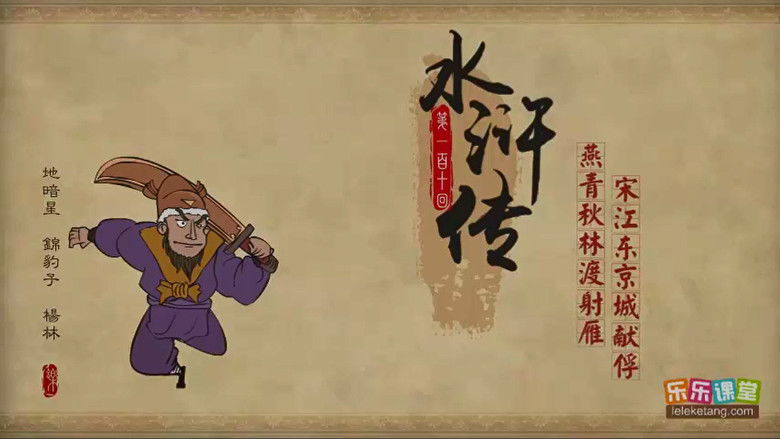 水浒传
第一百十回
燕青秋林渡射雁
宋江东京城献俘
地暗星 錦豹子 楊林
乐乐课堂
leleketang.com